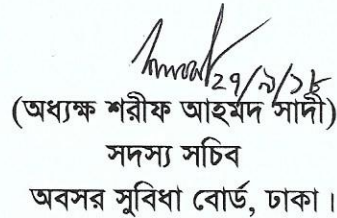 ২৭/৯/১৮
(অধ্যক্ষ শরীফ আহমদ সাদী)
সদস্য সচিব
অবসর সুবিধা বোর্ড, ঢাকা।